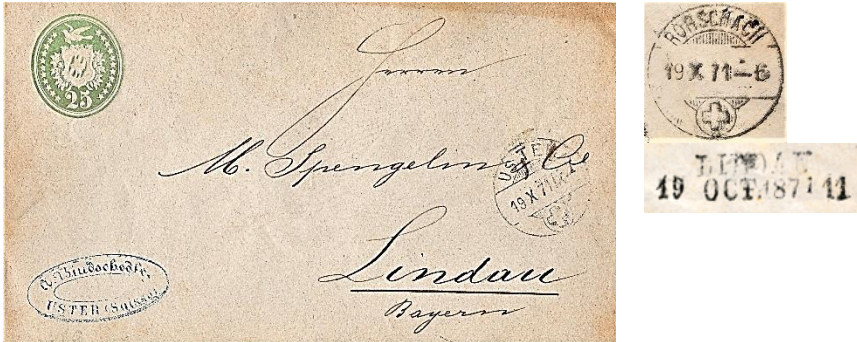 25
Herren
M. Spengelin & Cie
USTER
19 X 71
Lindau
Bayern
USTER (Suisse)
RORSCHACH
19 X 71 - 6
LINDAU
19 OCT. 1871 11